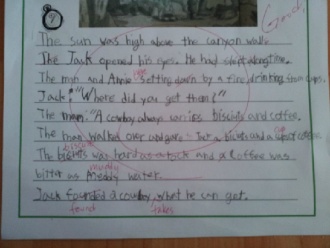 Good
The sun was high above the canyon wall.
The Jack opened his eyes. He had slept a long time.
The man and Annie were sitting down by a fire drinking from cups.
Jack: "Where did you get them?"
The man: "A cowboy always carries biscuits and coffee.
The man walked over and gave Jack a biscuit and a cup of coffee.
The biscuits was hard as a rock and a coffee was
biscuit
bitter as muddy water.
muddy
Jack founded a cowboy, what he can get.
found takes